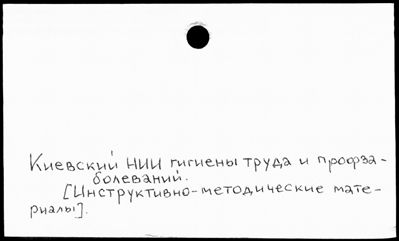 Киевский НИИ гигиены труда и профза-
болеваний.
[Инструктивно-методические мате-
риалы].